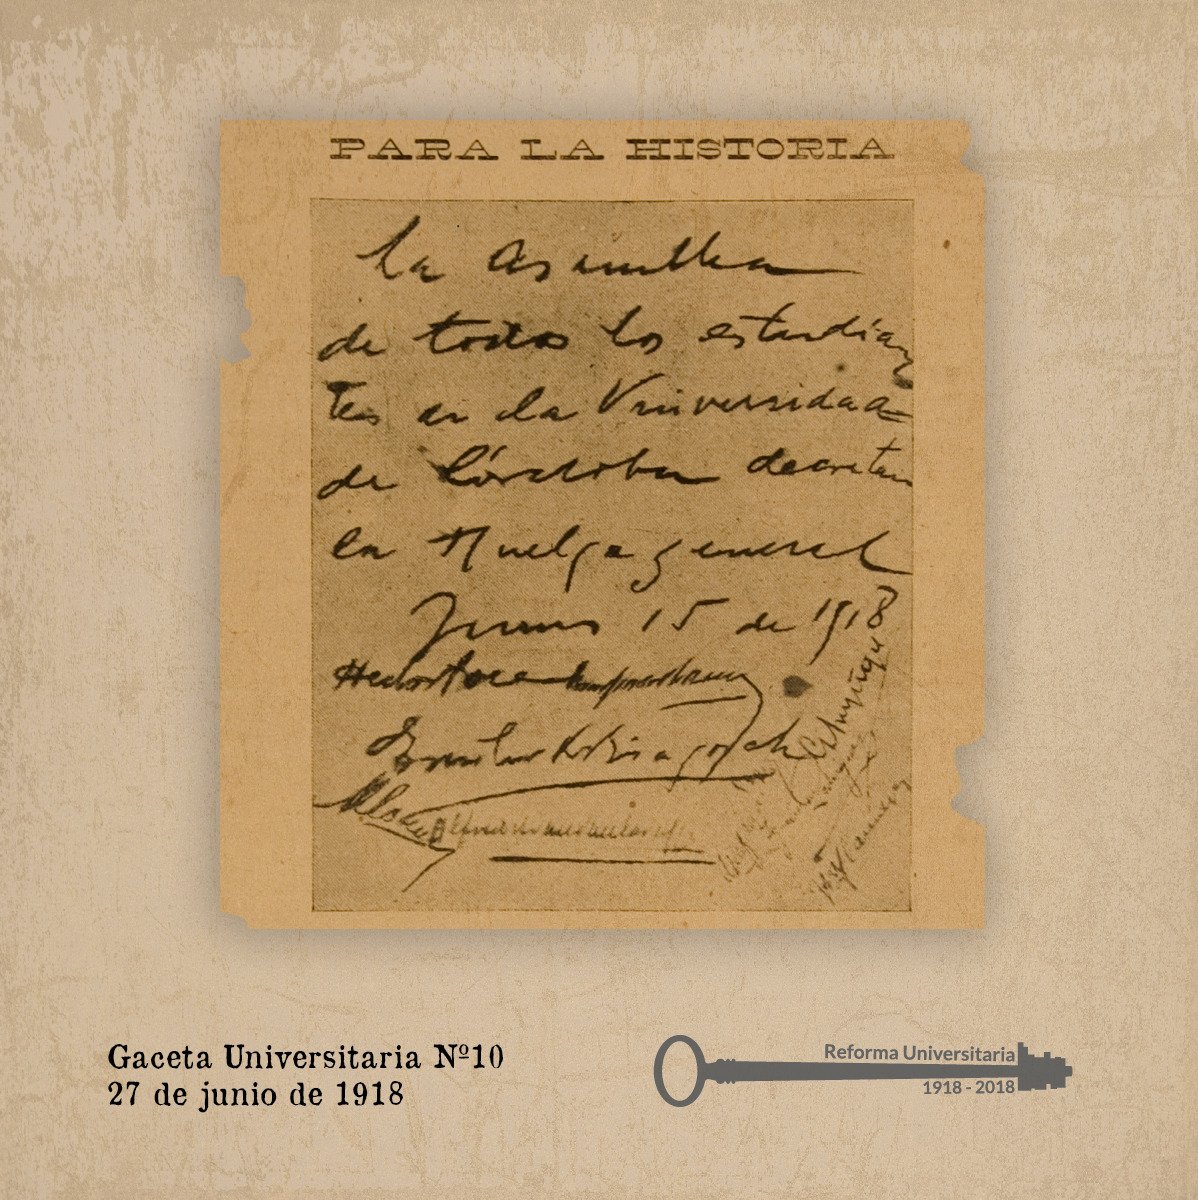 PARA LA HISTORIA
La Asamblea
de todos los estudian
tes en la Universidad
de Córdoba decreta
la Huelga general
Junio 15 de 1918
Biagosch
Gaceta Universitaria Nº10
27 de junio de 1918
Reforma Universitaria
1918 - 2018